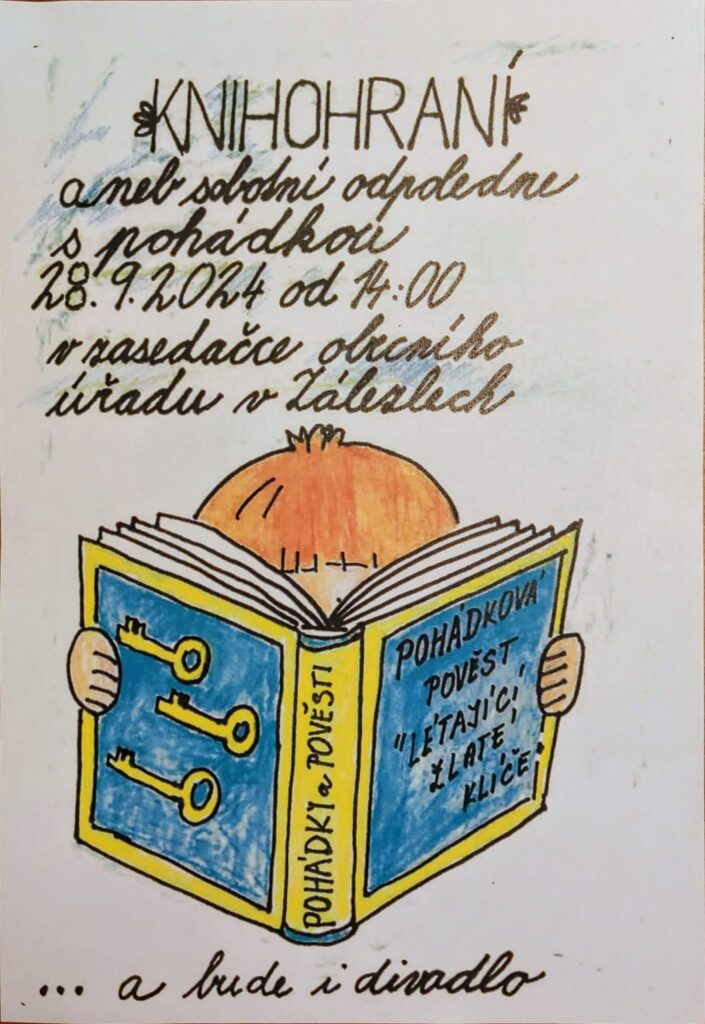 KNIHOHRANÍ
aneb sobotní odpoledne
s pohádkou
28.9.2024 od 14:00
v zasedačce obecního
úřadu v Zálezlech
POHÁDKOVÁ
POVĚST
"LÉTAJÍCÍ
ZLATÉ
KLÍČE"
POHÁDKY a POVĚSTI
... a bude i divadlo